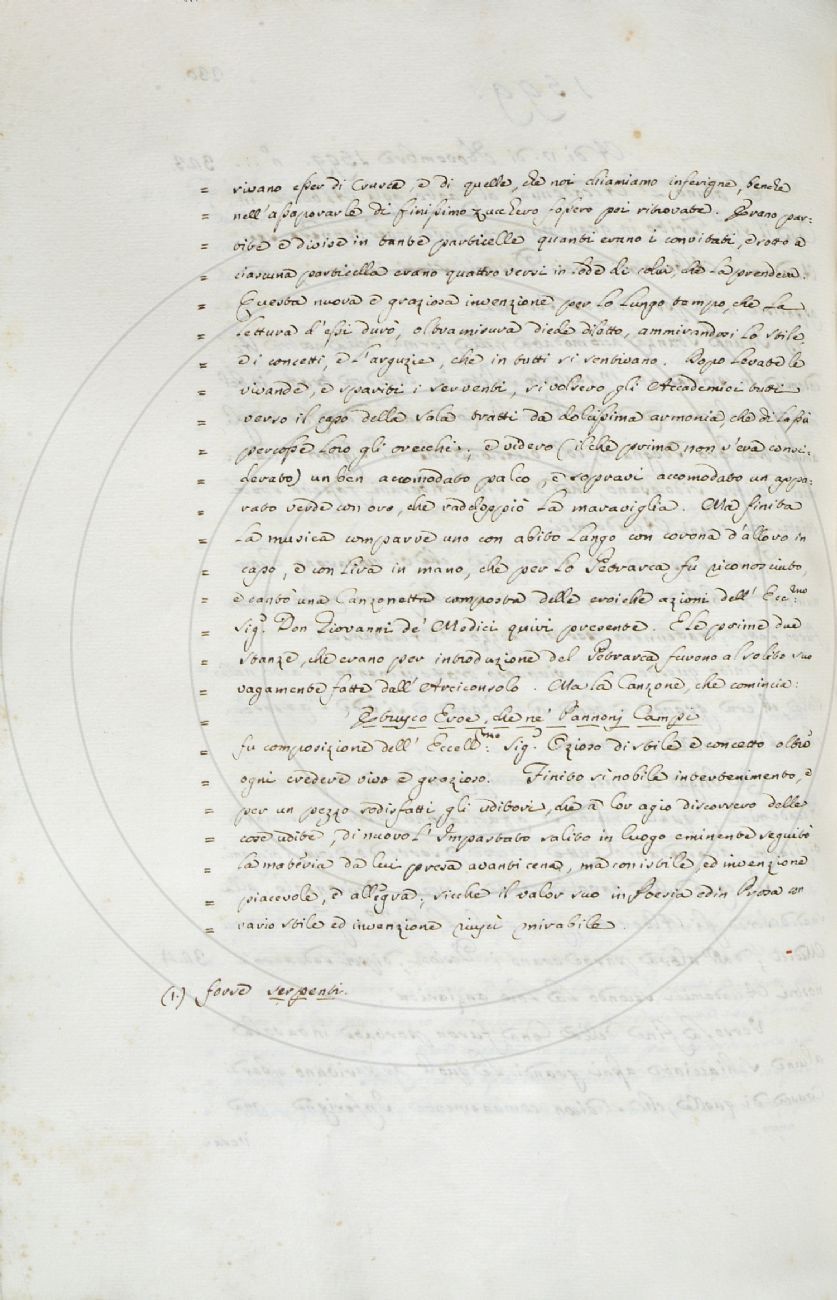 = rivano esser di Crusca, e di quelle, che noi chiamiamo inferigne, benche
= nell'assaporarle di finissimo zucchero fossero poi ritrovate. Erano par-
= tite e divise in tante particelle quanti erano i convitati, e sotto a
= ciascuna particella erano quattro versi in lode di colui, che la prendeva.
= Questa nuova e graziosa invenzione per lo lungo tempo, che la
= lettura d'essi durò, oltramisura diede diletto, ammirandosi lo stile,
= e i concetti, e l'arguzie, che in tutti si sentivano. Dopo levate le
= vivande, e spariti i serventi, si volsero gli Accademici tutti
= verso il capo della sala tratti da dolcissima armonia, che di lassù
= percosse loro gli orecchi; e videro (il che prima non s'era consi-
= derato) un ben accomodato palco, e sopravi accomodato un appa-
= rato verde con oro, che raddoppiò la maraviglia. Ma finita
= la musica comparve uno con abito lungo con corona d'alloro in
= capo, e con lira in mano, che per lo Petrarca fu riconosciuto,
= e cantò una Canzonetta composta delle eroiche azioni dell' Ecc.mo
= Sig.r Don Giovanni de' Medici quivi presente. E le prime due
= stanze, che erano per introduzione del Petrarca furono al solito suo
= vagamente fatte dall'Arciconsolo. Ma la Canzone, che comincia:
= Etrusco Eroe, che ne' Pannonj Campi
= fu composizione dell' Eccell.mo Sig.r Ozioso di stile e concetto oltre
= ogni credere vivo e grazioso. Finito sì nobile intertenimento, e
= per un pezzo sodisfatti gli uditori, che a lor agio discorrero delle
= cose udite, di nuovo l'Impastato salito in luogo eminente seguitò
= la materia da lui presa avanti cena, ma con istile, ed invenzione
= piacevole, e allegra; sicche il valor suo in Poesia ed in Prosa con
= vario stile ed invenzione riuscì mirabile.
(1.) forse serpenti.